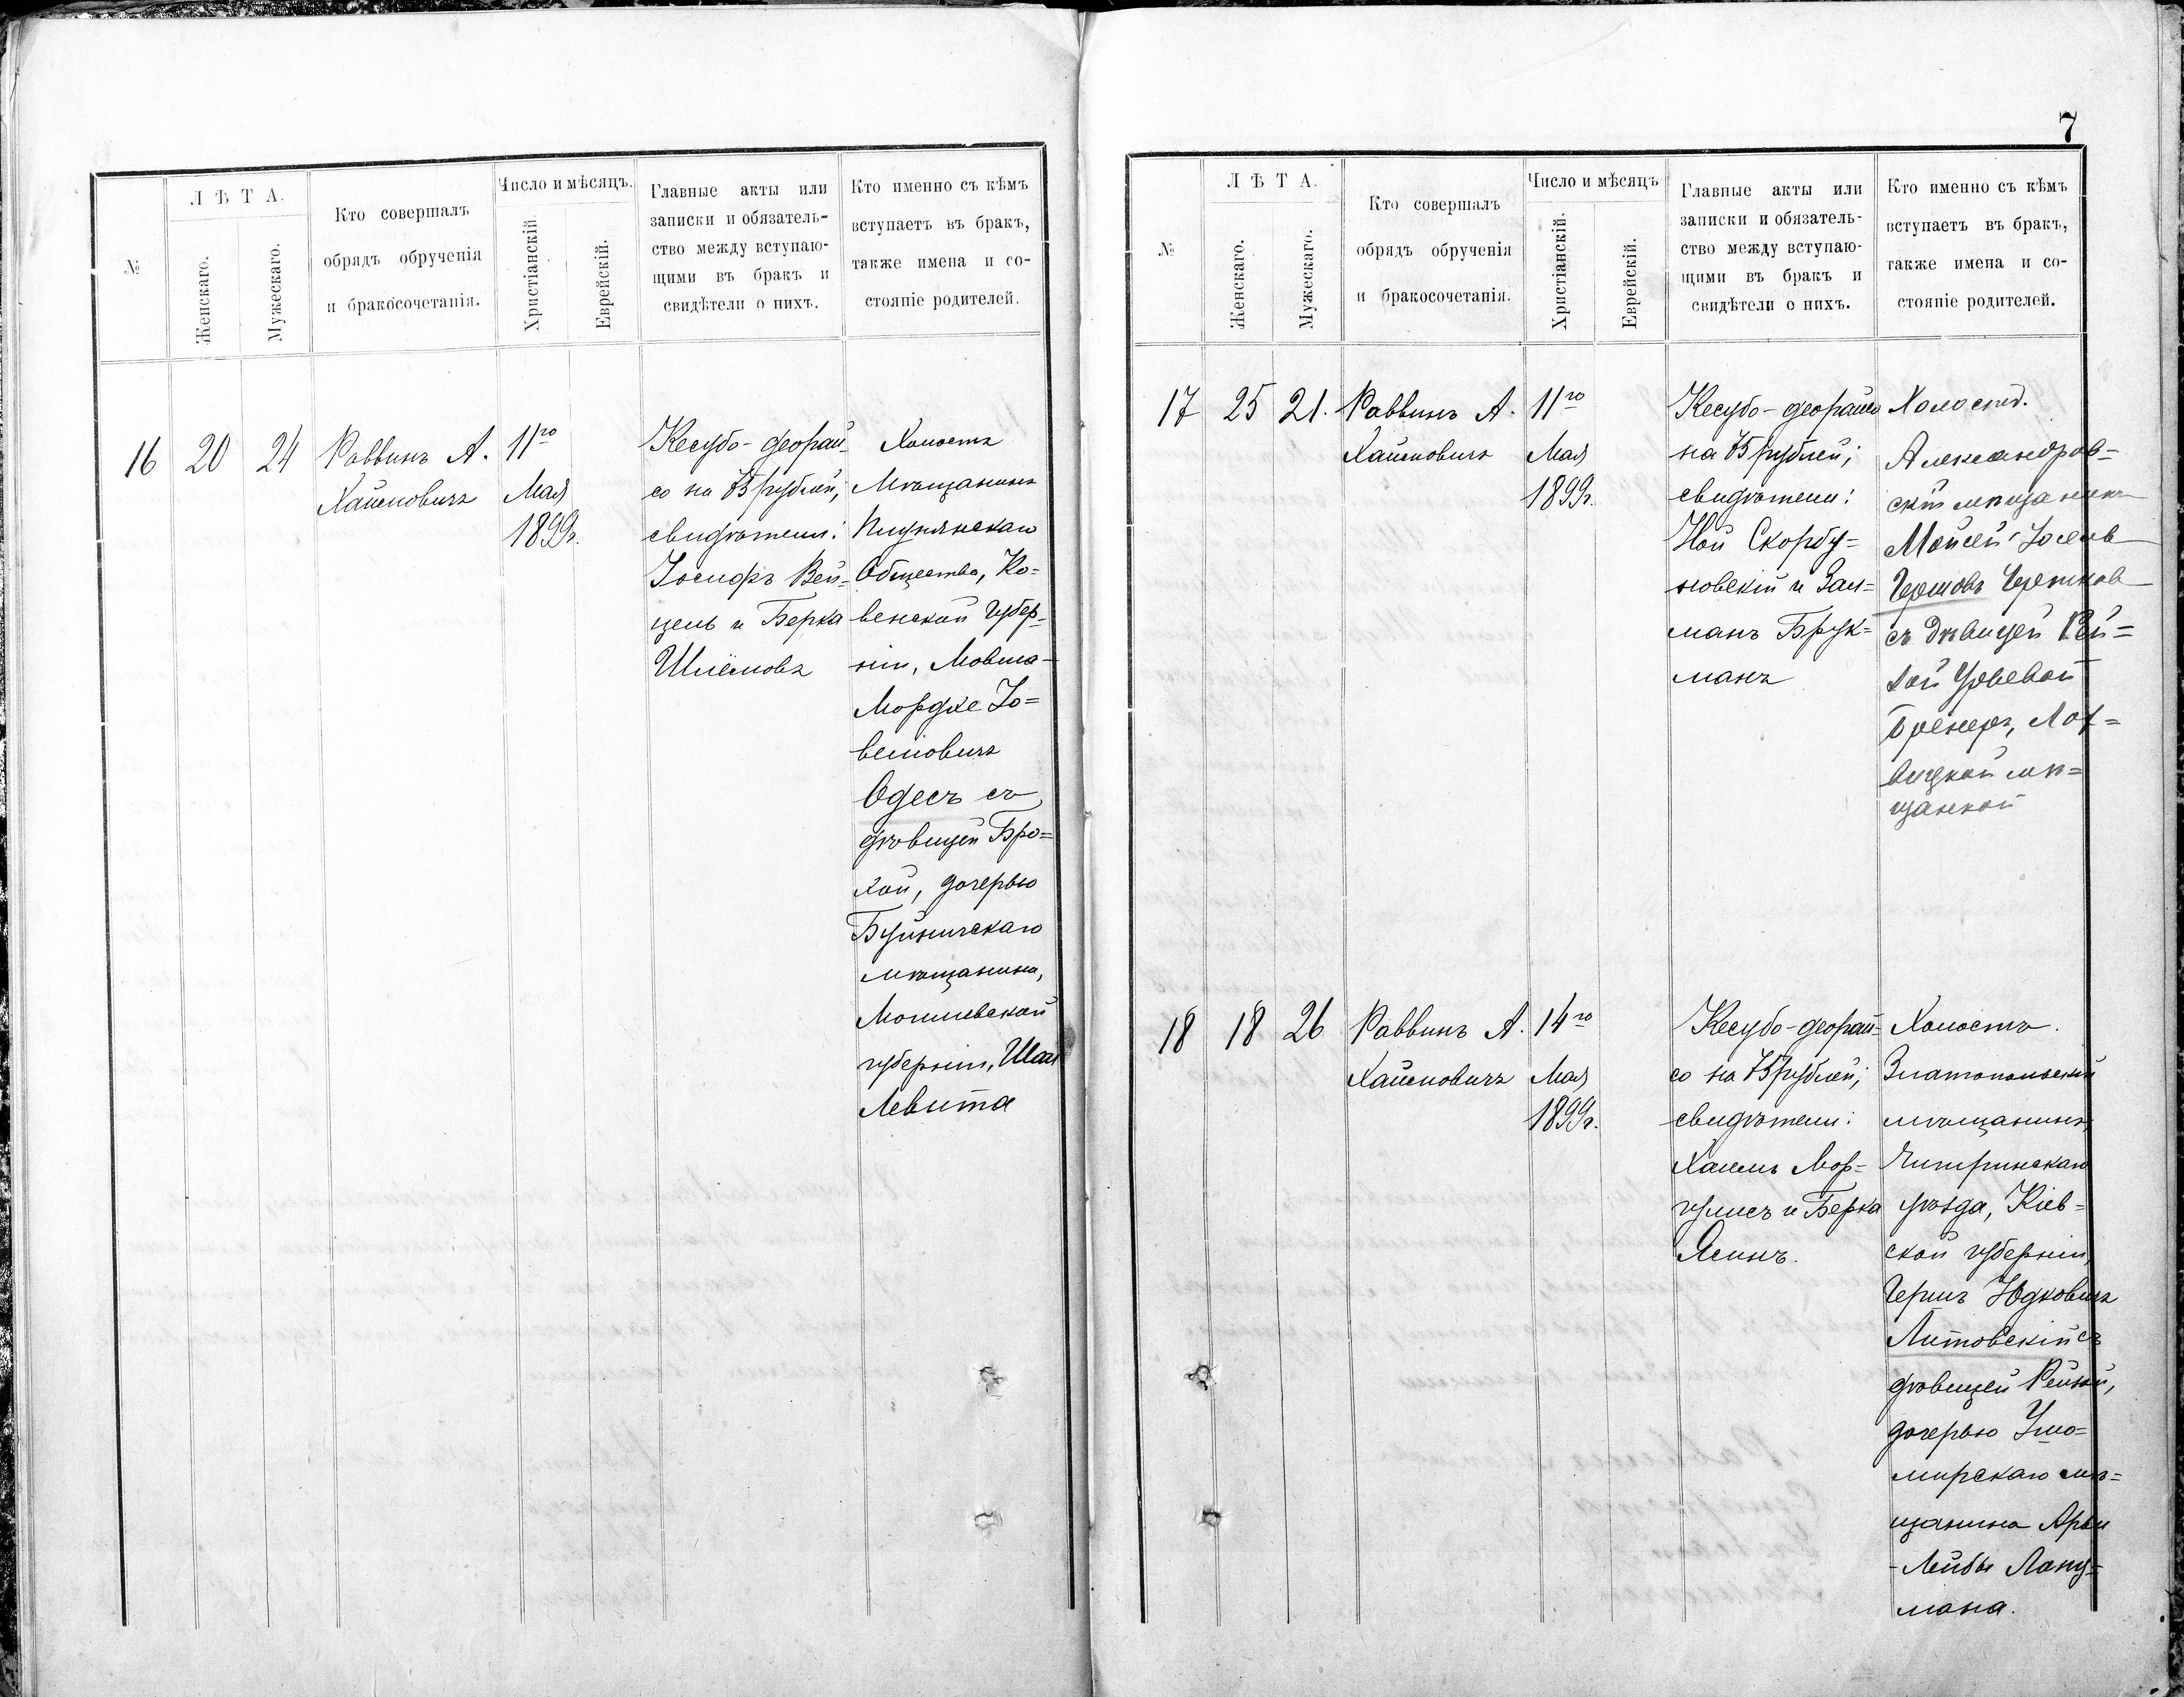 7
№
ЛѢТА.
Женскаго.
Мужескаго.
Кто совершалъ
обрядъ обрученія
и бракосочетанія.
Число и мѣсяцъ.
Христіанскій.
Еврейскій.
Главные акты или
записки и обязатель-
ство между вступаю-
щими въ бракъ и
свидѣтели о нихъ.
Кто именно съ кѣмъ
вступаетъ въ бракъ,
также имена и со-
стояніе родителей.
16
20
24
Раввинъ А.
Хаймовичъ
11го
Мая
1899г.
Кесубо-деорай-
со на 75 рублей;
свидѣтели:
Іосифъ Вей-
цель и Берка
Шлёмовъ
Холостъ
Мѣщанинъ
Общества, Ко-
венской Губер-
ніи, Мовша-
Мордхе Іо-
веліовичъ
Одесъ съ
дѣвицей Бро-
хой, дочерью
Буйничскаго
мѣщанина,
Могилевской
губерніи, Шаи
Левита
№
ЛѢТА.
Женскаго.
Мужескаго.
Кто совершалъ
обрядъ обрученія
и бракосочетанія.
Число и мѣсяцъ
Христіанскій.
Еврейскій.
Главные акты или
записки и обязатель-
ство между вступаю-
щими въ бракъ и
свидѣтели о нихъ.
Кто именно съ кѣмъ
вступаетъ въ бракъ,
также имена и со-
стояніе родителей.
17
25
21.
Раввинъ А.
Хаймовичъ
11го
Мая
1899г.
Кесубо-деорайсо
на 75 рублей;
свидѣтели:
Ной Скорбу-
новскій и Зал-
манъ Брук-
манъ
Холостъ.
Александров-
скій мѣщанинъ
Мойсей Іосель
Гершовъ
съ дѣвицей Рей-
Лох-
вицкой мѣ-
щанкой
18
18
26
Раввинъ А.
Хаймовичъ
14го
Мая
1899г.
Кесубо-деорай-
со на 75 рублей;
свидѣтели:
Хаимъ Мор-
гулисъ и Берка
Ясинъ.
Холостъ.
Златопольскій
мѣщанинъ,
Чигиринскаго
уѣзда, Кіев-
ской губерніи,
Гершъ Юдковичъ
Литовскій съ
дѣвицей Рейзей,
дочерью Ушо-
мирскаго мѣ-
щанина Арьи
-Лейбы Ланц-
мана.